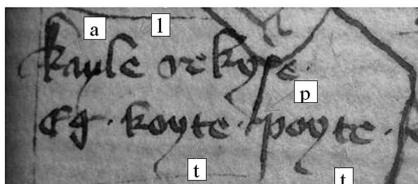 a l
kayle rekype.
p
koyte · poyte ·
t t